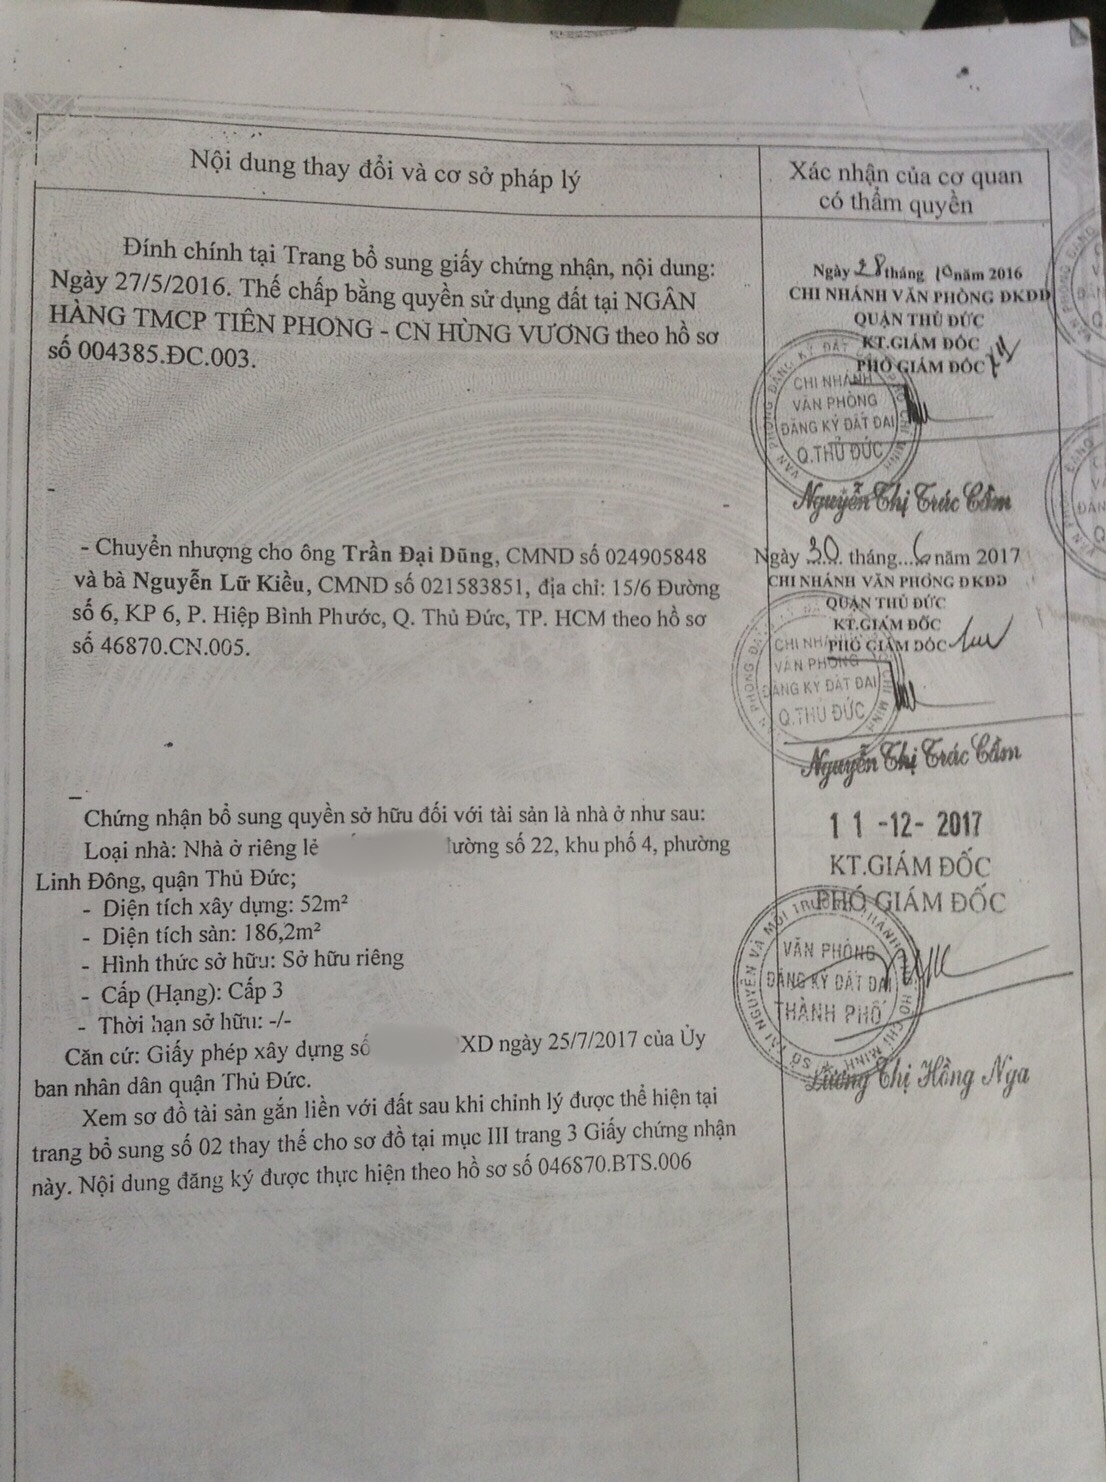 Nội dung thay đổi và cơ sở pháp lý
Xác nhận của cơ quan
có thẩm quyền
Đính chính tại Trang bổ sung giấy chứng nhận, nội dung:
Ngày 27/5/2016. Thế chấp bằng quyền sử dụng đất tại NGÂN
HÀNG TMCP TIÊN PHONG - CN HÙNG VƯƠNG theo hồ sơ
số 004385.ĐC.003.
Ngày 28 tháng 10 năm 2016
CHI NHÁNH VĂN PHÒNG ĐKDD
QUẬN THỦ ĐỨC
KT.GIÁM ĐỐC
PHÓ GIÁM ĐỐC
CHI NHÁNH
VĂN PHÒNG
ĐĂNG KÝ ĐẤT ĐAI
Q.THỦ ĐỨC
Nguyễn Thị Trúc Cầm
- Chuyển nhượng cho ông Trần Đại Dũng, CMND số 024905848
và bà Nguyễn Lữ Kiều, CMND số 021583851, địa chỉ: 15/6 Đường
số 6, KP 6, P. Hiệp Bình Phước, Q. Thủ Đức, TP. HCM theo hồ sơ
số 46870.CN.005.
Ngày 30 tháng 6 năm 2017
CHI NHÁNH VĂN PHÒNG ĐKDD
QUẬN THỦ ĐỨC
KT.GIÁM ĐỐC
PHÓ GIÁM ĐỐC
CHI NHÁNH
VĂN PHÒNG
ĐĂNG KÝ ĐẤT ĐAI
Q.THỦ ĐỨC
Nguyễn Thị Trúc Cầm
Chứng nhận bổ sung quyền sở hữu đối với tài sản là nhà ở như sau:
Loại nhà: Nhà ở riêng lẻ đường số 22, khu phố 4, phường
Linh Đông, quận Thủ Đức;
- Diện tích xây dựng: 52m²
- Diện tích sàn: 186,2m²
- Hình thức sở hữu: Sở hữu riêng
- Cấp (Hạng): Cấp 3
- Thời hạn sở hữu: -/-
Căn cứ: Giấy phép xây dựng số XD ngày 25/7/2017 của Ủy
ban nhân dân quận Thủ Đức.
Xem sơ đồ tài sản gắn liền với đất sau khi chỉnh lý được thể hiện tại
trang bổ sung số 02 thay thế cho sơ đồ tại mục III trang 3 Giấy chứng nhận
này. Nội dung đăng ký được thực hiện theo hồ sơ số 046870.BTS.006
11-12-2017
KT.GIÁM ĐỐC
PHÓ GIÁM ĐỐC
VĂN PHÒNG
ĐĂNG KÝ ĐẤT ĐAI
THÀNH PHỐ
Lương Thị Hồng Nga